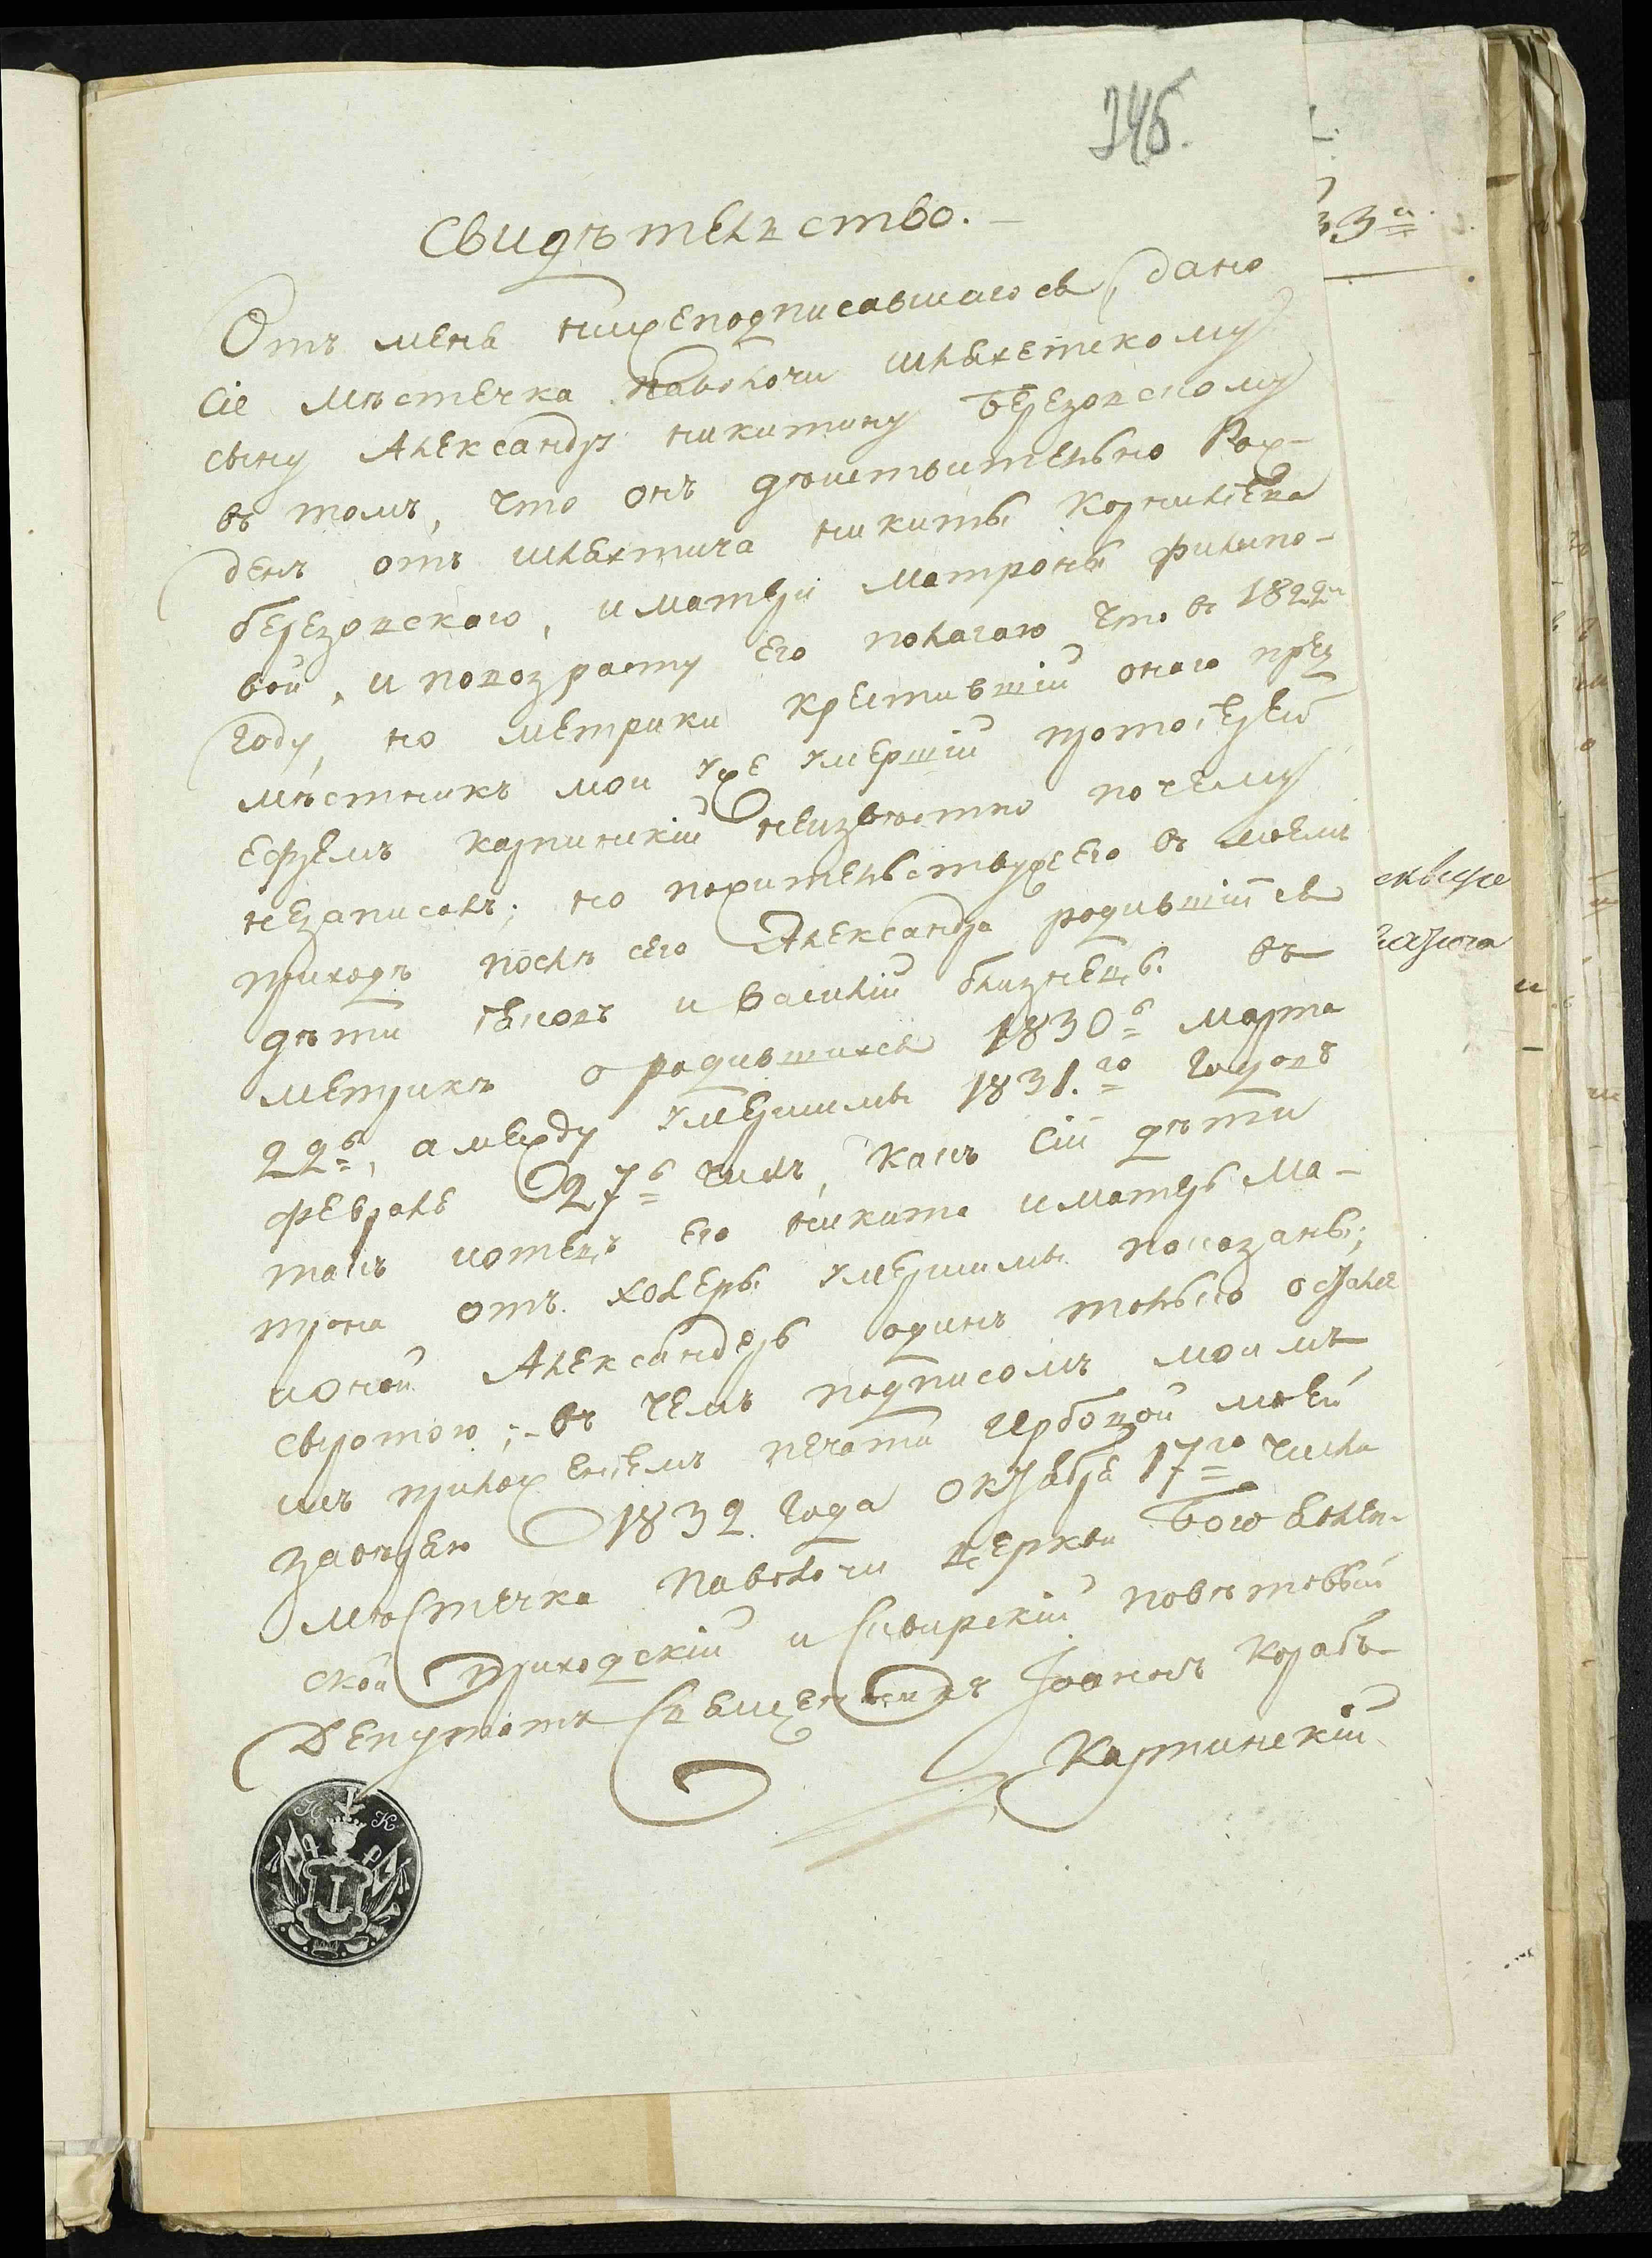 346.
Свидѣтелство.
Отъ меня нижеподписавшагося, дано
сіе мѣстечка Паволочи шляхетскому
сыну Александру Никитину Березовскому
въ томъ, что онъ дѣйствительно Рож-
денъ отъ шляхтича Никиты Корнилѣева
Березовского, и матери матроны филипо-
вой, и повозрасту его полагаю что въ 1822мъ
году, но метрики крестившій оного пред
мѣстникъ мой уже умершій протоіерей
Ефремъ Карпинскій неизвѣстно почему
незаписалъ; но пожителствуже его въ моемъ
приходѣ послѣ сего Александра родившіися
дѣти Яковъ и Василій близнецы въ
метрикѣ о родившихся 1830в марта
22в, а между умершими 1831.го годовъ
февраля 27в числъ, какъ сіи дѣти
такъ иотецъ его никита иматерь Ма-
трона отъ холеры умершими показаны;
ионой Александеръ одинъ только осталя
сыротою; въ чемъ подписомъ моимъ
изъ приложеніемъ печати гербовой моей
завѣряю 1832 года октября 17го числа
мѣстечка Паволочи церкви Богоявлен-
ской приходскій и Сквирскій повѣтовый
Депутатъ Священникъ Іоаннъ Корабъ
Карпинскій
К
33а